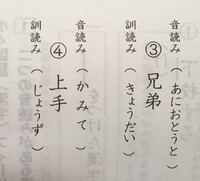 音読み（あにおとうと）
③兄弟
訓読み（きょうだい）
音読み（かみて）
④上手
訓読み（じょうず）